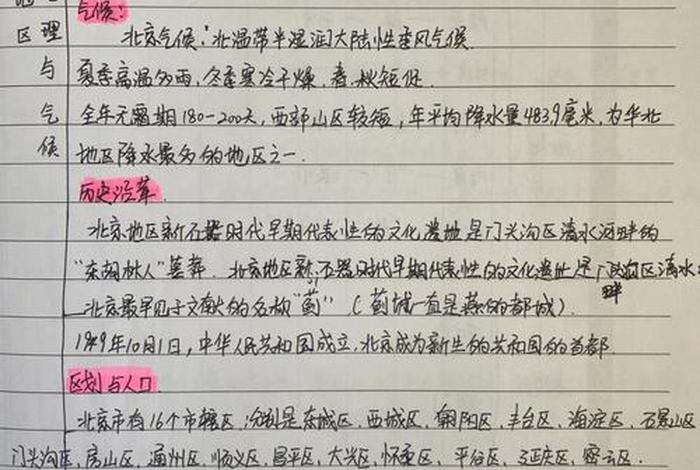 区理
与
气
候
气候：
北京气候：北温带半湿润大陆性季风气候
夏季高温多雨，冬季寒冷干燥，春、秋短促.
全年无霜期180-200天，西部山区较短，年平均降水量483.9毫米，为华北
地区降水最多的地区之一.
历史沿革
北京地区新石器时代早期代表性的文化遗址是门头沟区清水河畔的
“东胡林人”墓葬. 北京地区新石器时代早期代表性的文化遗址是门头沟区清水河畔
北京最早见于文献的名称“蓟”（蓟城一直是燕的都城）.
1949年10月1日，中华人民共和国成立，北京成为新生的共和国的首都.
区划与人口
北京市有16个市辖区，分别是东城区，西城区，朝阳区，丰台区，海淀区，石景山区
门头沟区，房山区，通州区，顺义区，昌平区，大兴区，怀柔区，平谷区，延庆区，密云区.